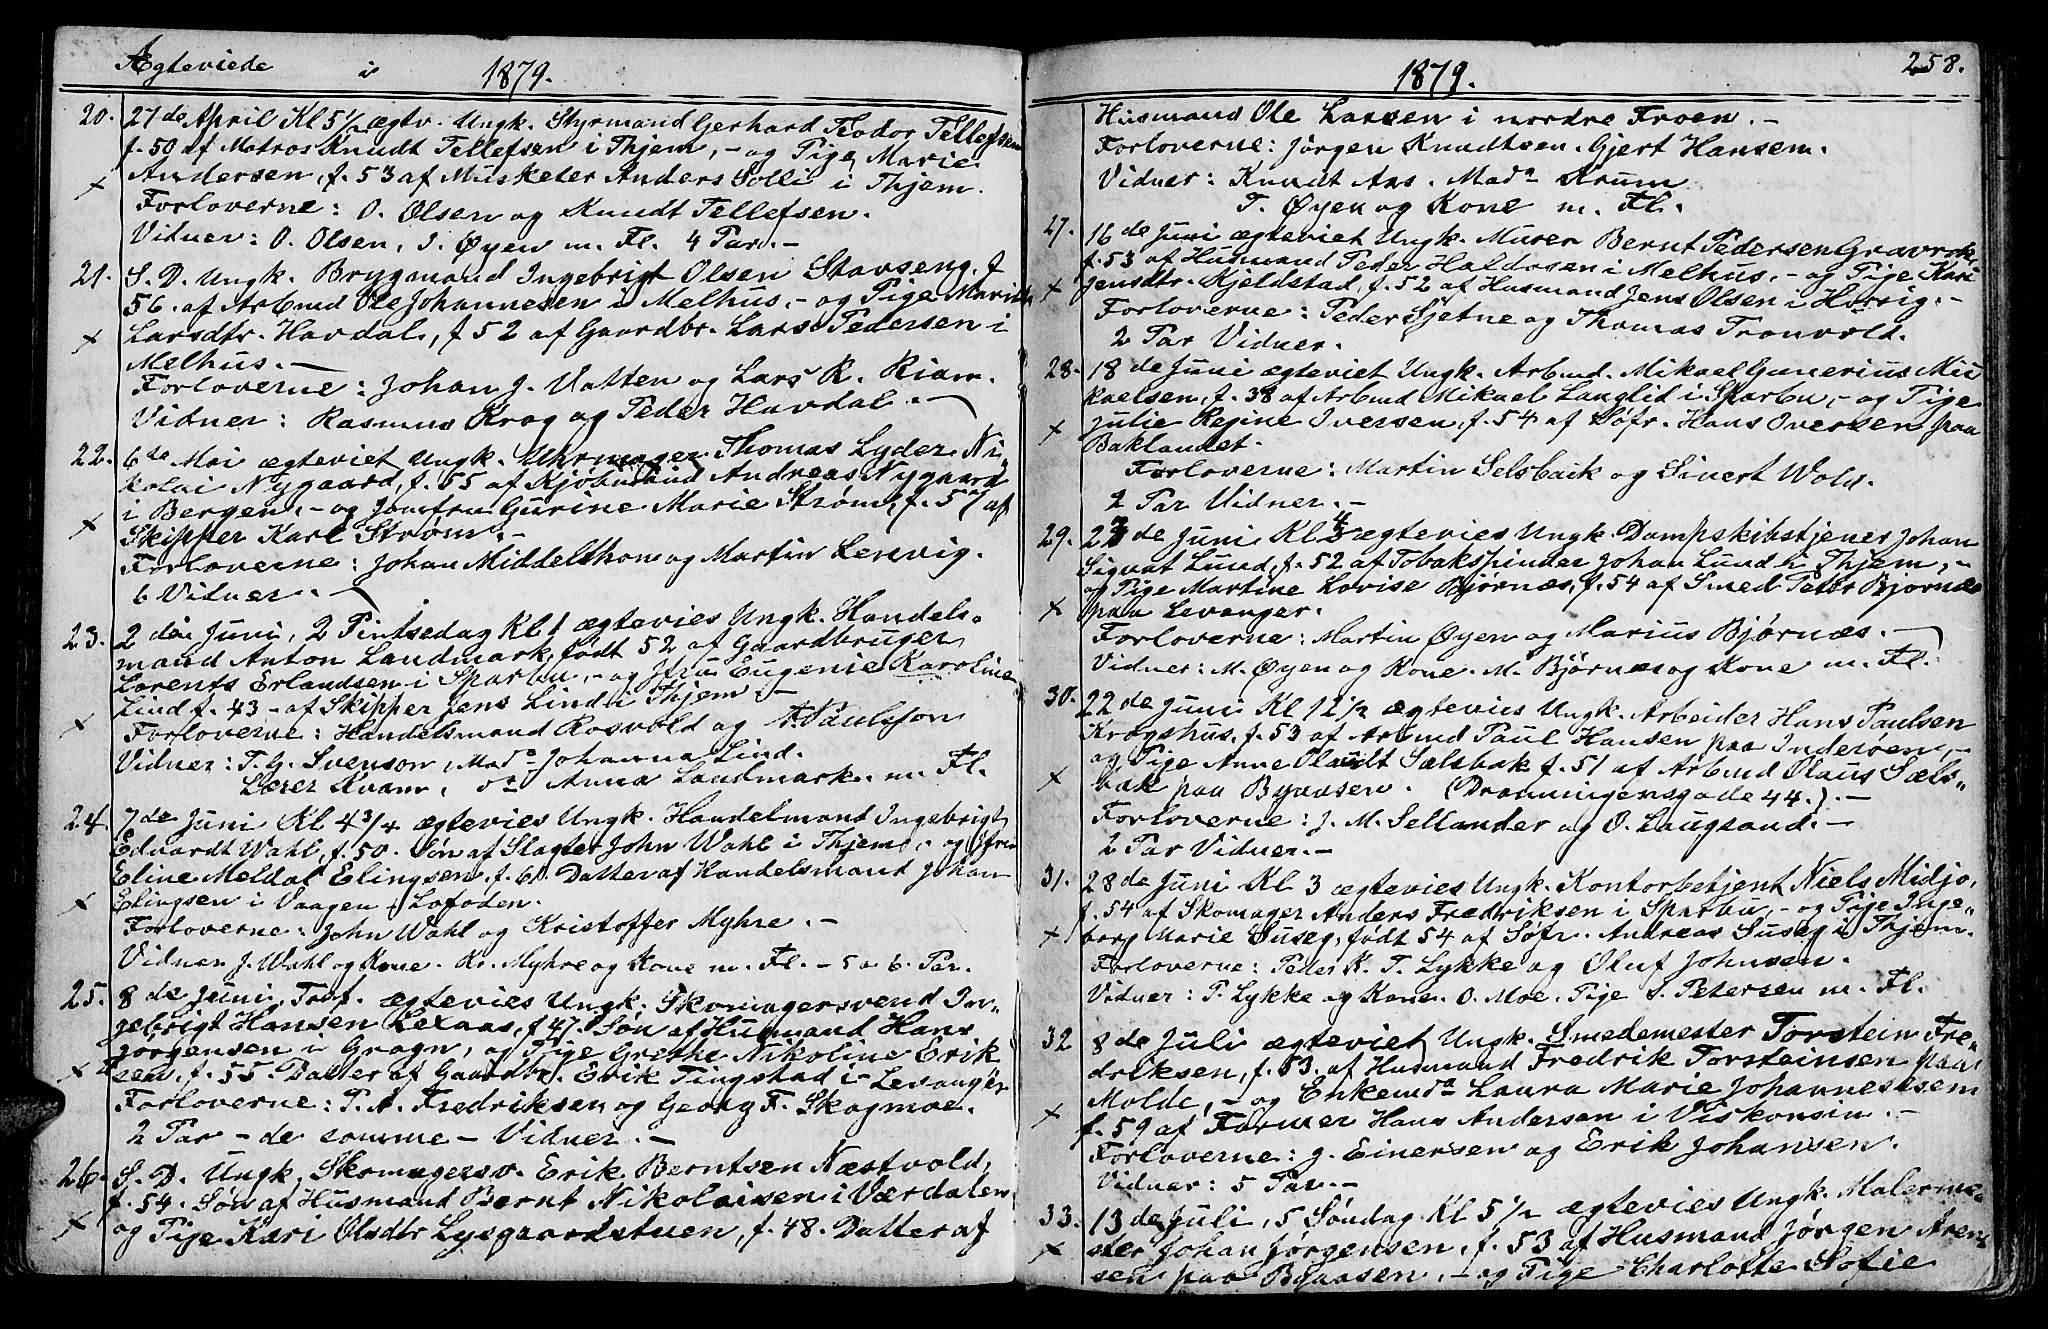 Ægteviede i 1879.
20. 27de April Kl 5 1/2 ægtv. Ungk. Styrmand Gerhard Teodor Tellefsen
f. 50 af Matros Knudt Tellefsen i Thjem, - og Pige Marie
Andersen, f. 53 af Musketer Anders Solli i Thjem.
Forloverne: O. Olsen og Knudt Tellefsen.
Vidner: O. Olsen, J. Øyen m. Fl. 4 Par. -
21. S. D. Ungk. Brygmand Ingebrigt Olsen Stavseng, f
56. af Arbmd Ole Johannesen i Melhus, - og Pige Marith
Larsdtr. Havdal, f 52 af Gaardbr. Lars Pedersen i
Melhus. -
Forloverne: Johan J. Vatten og Lars R. Riam.
Vidner: Rasmus Krog og Peder Havdal. -
22. 6te Mai ægteviet Ungk. Uhrmager Thomas Lyder Ni-
kolai Nygaard, f. 55 af Kjøbmand Andreas Nygaard
i Bergen, - og Jomfru Gurine Marie Strøm, f. 57 af
Skipper Karl Strøm. -
Forloverne: Johan Middelthon og Martin Lenvig.
6 Vidner. -
23. 2den Juni, 2 Pintsedag Kl 1 ægtevies Ungk. Handels-
mand Anton Landmark, født 52 af Gaardbruger
Lorents Erlandsen i Sparbu, - og Jfru Eugenie Karoline
Lind f. 43 - af Skipper Jens Lind i Thjem. -
Forloverne: Handelsmand Rosvold og A. Paulsson
Vidner: T. G. Svenson, Mada Johanna Lind.
Lærer Kvam, Anna Landmark. m. Fl.
24. 7de Juni Kl 4 3/4 ægtevies Ungk. Handelmand Ingebrigt
Eduardt Wahl, f. 50. Søn af Slagter John Wahl i Thjem, - og Jfru
Eline Meldal Elingsen, f. 61. Datter af Handelsmand Johan
Elingsen i Vaagen i Lofoden.
Forloverne: John Wahl og Kristoffer Myhre. -
Vidner. J. Wahl og Kone. Kr. Myhre og Kone m. Fl. - 5 a 6. Par.
25. 8de Juni, Tref. ægtevies Ungk. Skomagersvend In-
gebrigt Hansen Lexaas, f 47. Søn af Husmand Hans
Jørgensen i Grogn, og Pige Grethe Nikoline Erik
sen, f. 55. Datter af Gaardbr. Erik Tingstad i Levanger
Forloverne: P. A. Fredriksen og Georg F. Skogmoe.
2 Par - de samme - Vidner. -
26. S. D. Ungk. Skomagersv. Erik Berntsen Næstvold,
f. 54. Søn af Husmand Bernt Nikolaisen i Værdalen
og Pige Kari Olsdtr Lysgaardstuen, f. 48. Datter af
1879. 258.
Husmand Ole Larsen i nordre Froen. -
Forloverne: Jørgen Knudtsen. Gjert Hansem.
Vidner: Knudt Aas. Mada Krum
T. Øyen og Kone m. Fl.
27. 16de Juni ægteviet Ungk. Murer Bernt Pedersen Gravrok,
f. 53 af Husmand Peder Haldosen i Melhus, - og Pige Kari
Jensdtr. Kjeldstad, f. 52 af Husmand Jens Olsen i Horrig. -
Forloverne: Peder Sjetne og Thomas Tronvold.
2 Par Vidner.
28. 18de Juni ægteviet Ungk. Arbmd. Mikael Gunerius Mi
kaelsen, f. 38 af Arbmd Mikael Langlid i Sparbu, - og Pige
Julie Regine Iversen, f. 54 af Søfr. Hans Iversen paa
Baklandet.
Forloverne: Martin Selsbaik og Sivert Wold.
2 Par Vidner. -
29. 22de Juni Kl 4 ægtevies Ungk. Dampskibstjener Johan
Sigvat Lund, f. 52 af Tobakspinder Johan Lund i Thjem, -
og Pige Martine Lovise Bjørnæs, f. 54 af Smed Peter Bjørnæs
paa Levanger.
Forloverne: Martin Øyen og Marius Bjørnæs. -
Vidner: M. Øyen og Kone. M. Bjørnæs og Kone m. Fl.
30. 22de Juni Kl 12 1/2 ægtevies Ungk. Arbeider Hans Paulsen
Krogshus, f. 53 af Arbmd Paul Hansen paa Inderøen, -
og Pige Anne Olausdt Sælsbak f. 51 af Arbmd Olaus Sæls-
bak paa Byaasen. (Dronningensgade 44.). -
Forloverne: J. M. Sellander og O. Laugsand. -
2 Par Vidner. -
31. 28de Juni Kl 3 ægtevies Ungk. Kontorbetjent Niels Midjo,
f. 54 af Skomager Anders Fredriksen i Sparbu, - og Pige Inge-
borg Marie Suseg, født 54 af Søfr. Andreas Suseg i Thjem.
Forloverne: Peder K. T. Lykke og Oluf Johnsen.
Vidner: P. Lykke og Kone. O. Moe. Pige S. Petersen m. Fl.
32 8de Juli ægteviet Ungk. Smedemester Torstein Fre-
driksen, f. 53. af Husmand Fredrik Torsteinsen paa
Molde, - og Enkemda Laura Marie Johannesssen
f. 59 af Farmer Hans Andersen i Viskonsin. -
Forloverne: J. Einersen og Erik Johansen.
Vidner: 5 Par. -
33. 13de Juli, 5 Søndag Kl 5 1/2 ægtevies Ungk. Malerme-
ster Johan Jørgensen, f. 53 af Husmand Jørgen Arent
sen paa Byaasen, - og Pige Charlotte Sofie